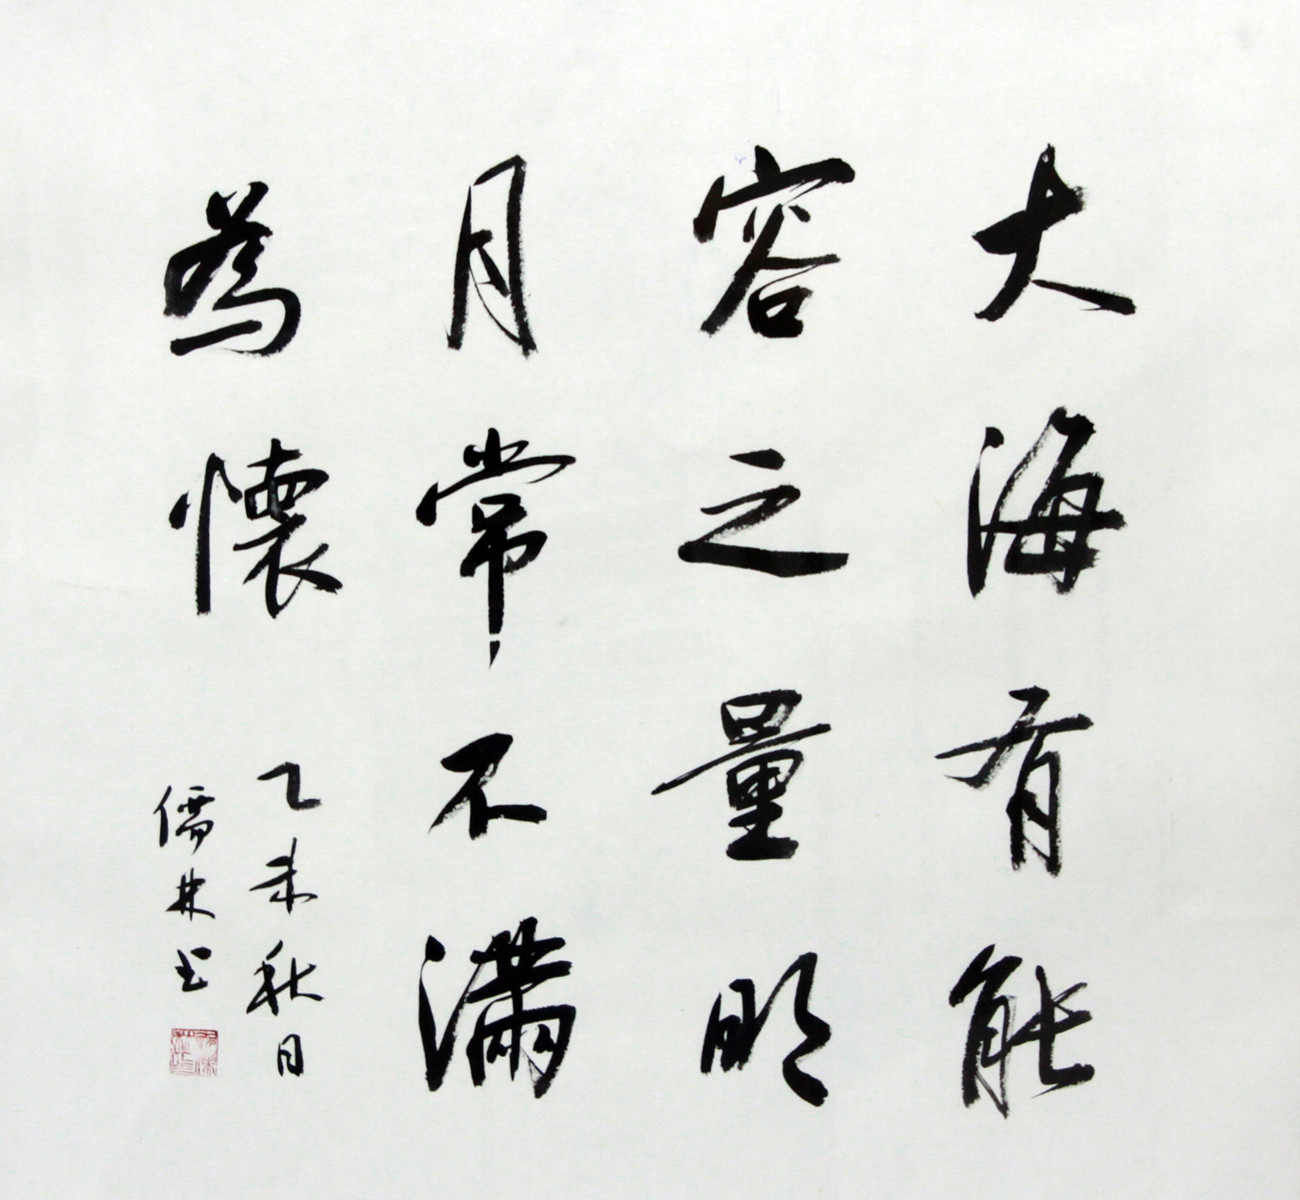 大海有能
容之量明
月常不滿
為懷
乙未秋日
儒林书